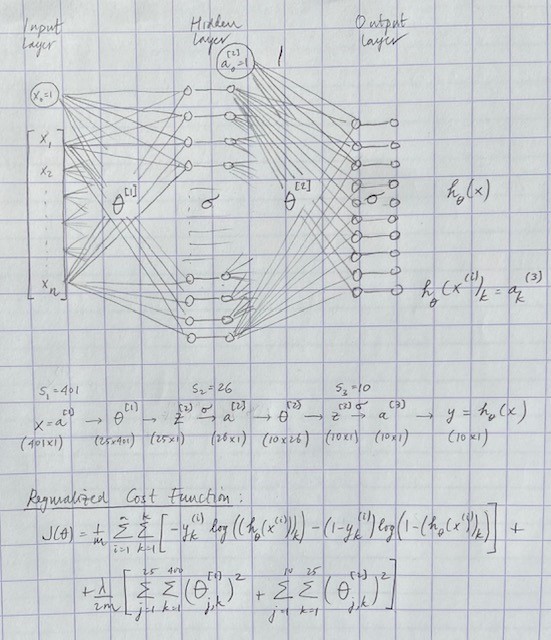 Input Layer
Hidden Layer
Output Layer
x₀=1
a₀^[2]=1
1
x₁
x₂
xₙ
θ^[1]
σ
θ^[2]
σ
h_θ(x)
h_θ(x^(i))_k = a_k^(3)
S₁=401 S₂=26 S₃=10
x=a^(1) → θ^[1] → z^(2) σ→ a^(2) → θ^(2) → z^(3) σ→ a^(3) → y = h_θ(x)
(401x1) (25x401) (25x1) (26x1) (10x26) (10x1) (10x1) (10x1)
Regnalized Cost Function :
J(θ) = 1/m Σ_{i=1}^{m} Σ_{k=1}^{k} [ -y_k^(i) log((h_θ(x^(i))_k) - (1-y_k^(i)) log(1-(h_θ(x^(i))_k) ] +
+ λ/2m [ Σ_{j=1}^{25} Σ_{k=1}^{400} (θ_{j,k}^[1])² + Σ_{j=1}^{10} Σ_{k=1}^{25} (θ_{j,k}^[2])² ]